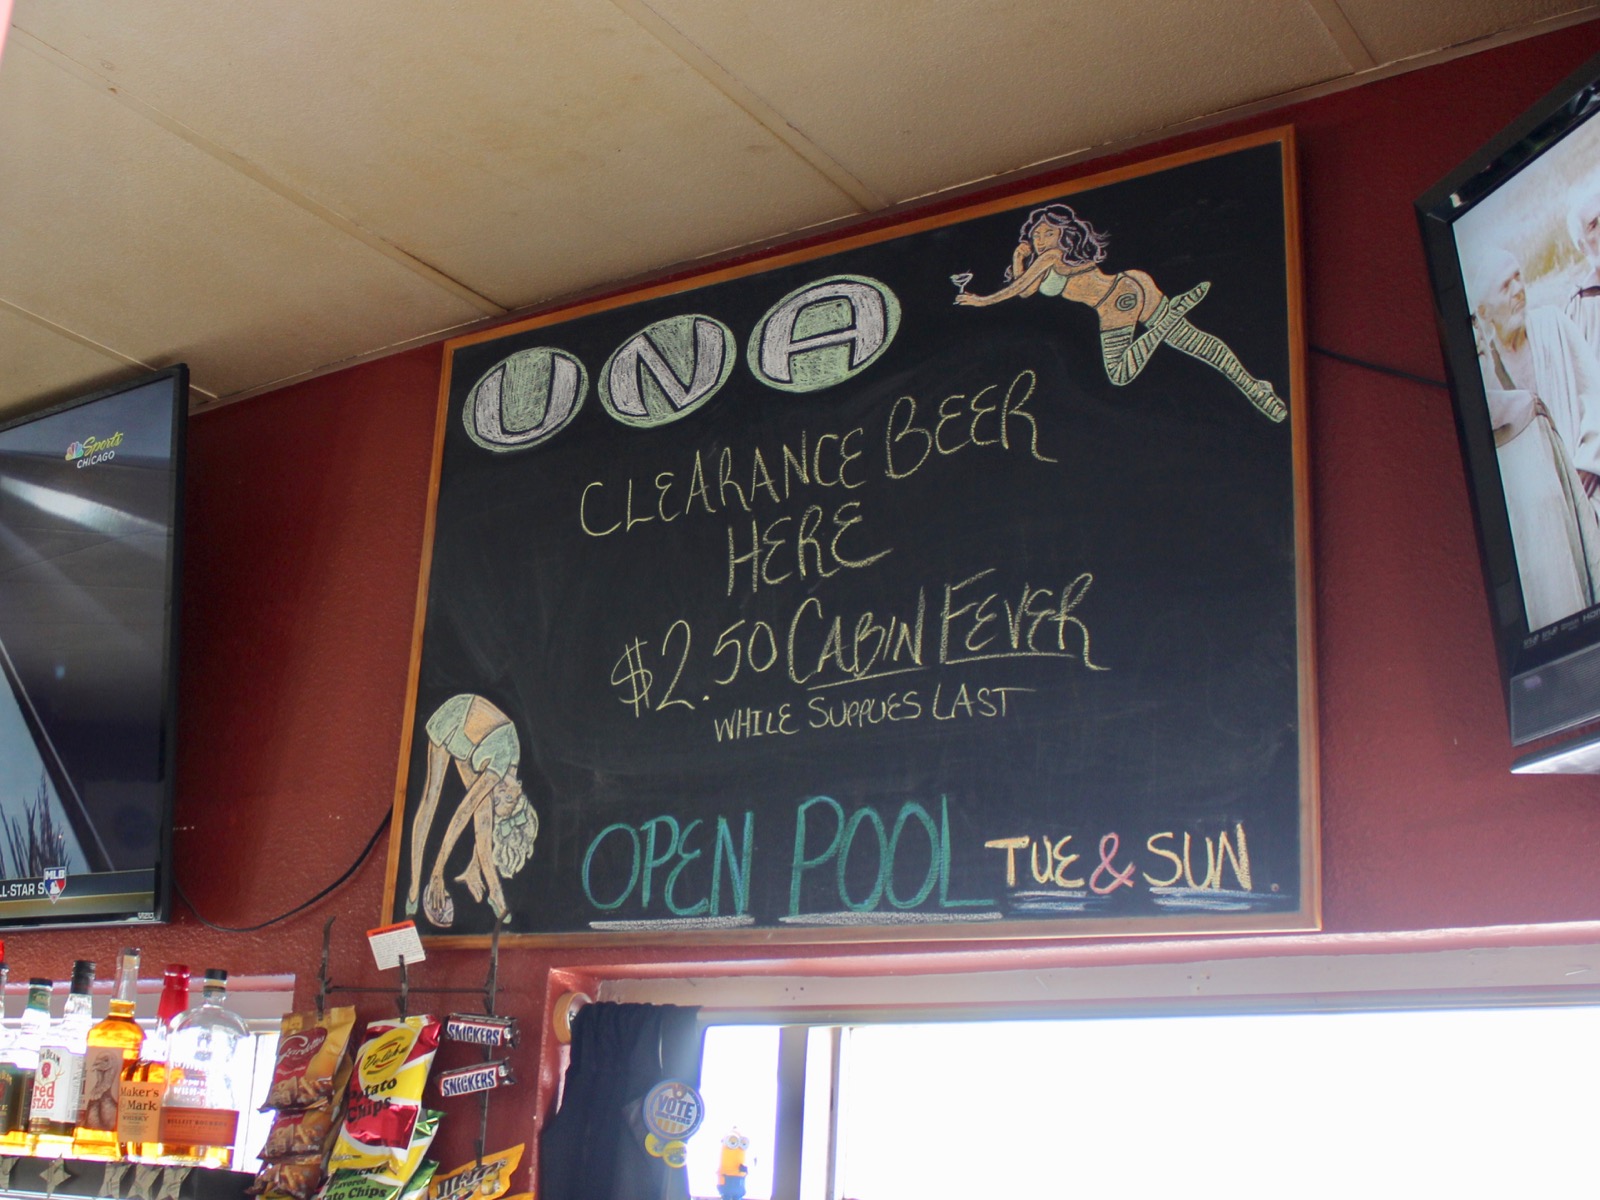 UNA
CLEARANCE BEER
HERE
$2.50 CABIN FEVER
WHILE SUPPLIES LAST
OPEN POOL TUE & SUN.
C
Sports
CHICAGO
MLB
SNICKERS
SNICKERS
Potato
Chips
Maker's
Mark
WHISKY
BEAM
red
STAG
BULLEIT BOURBON
VOTE
BREWERS